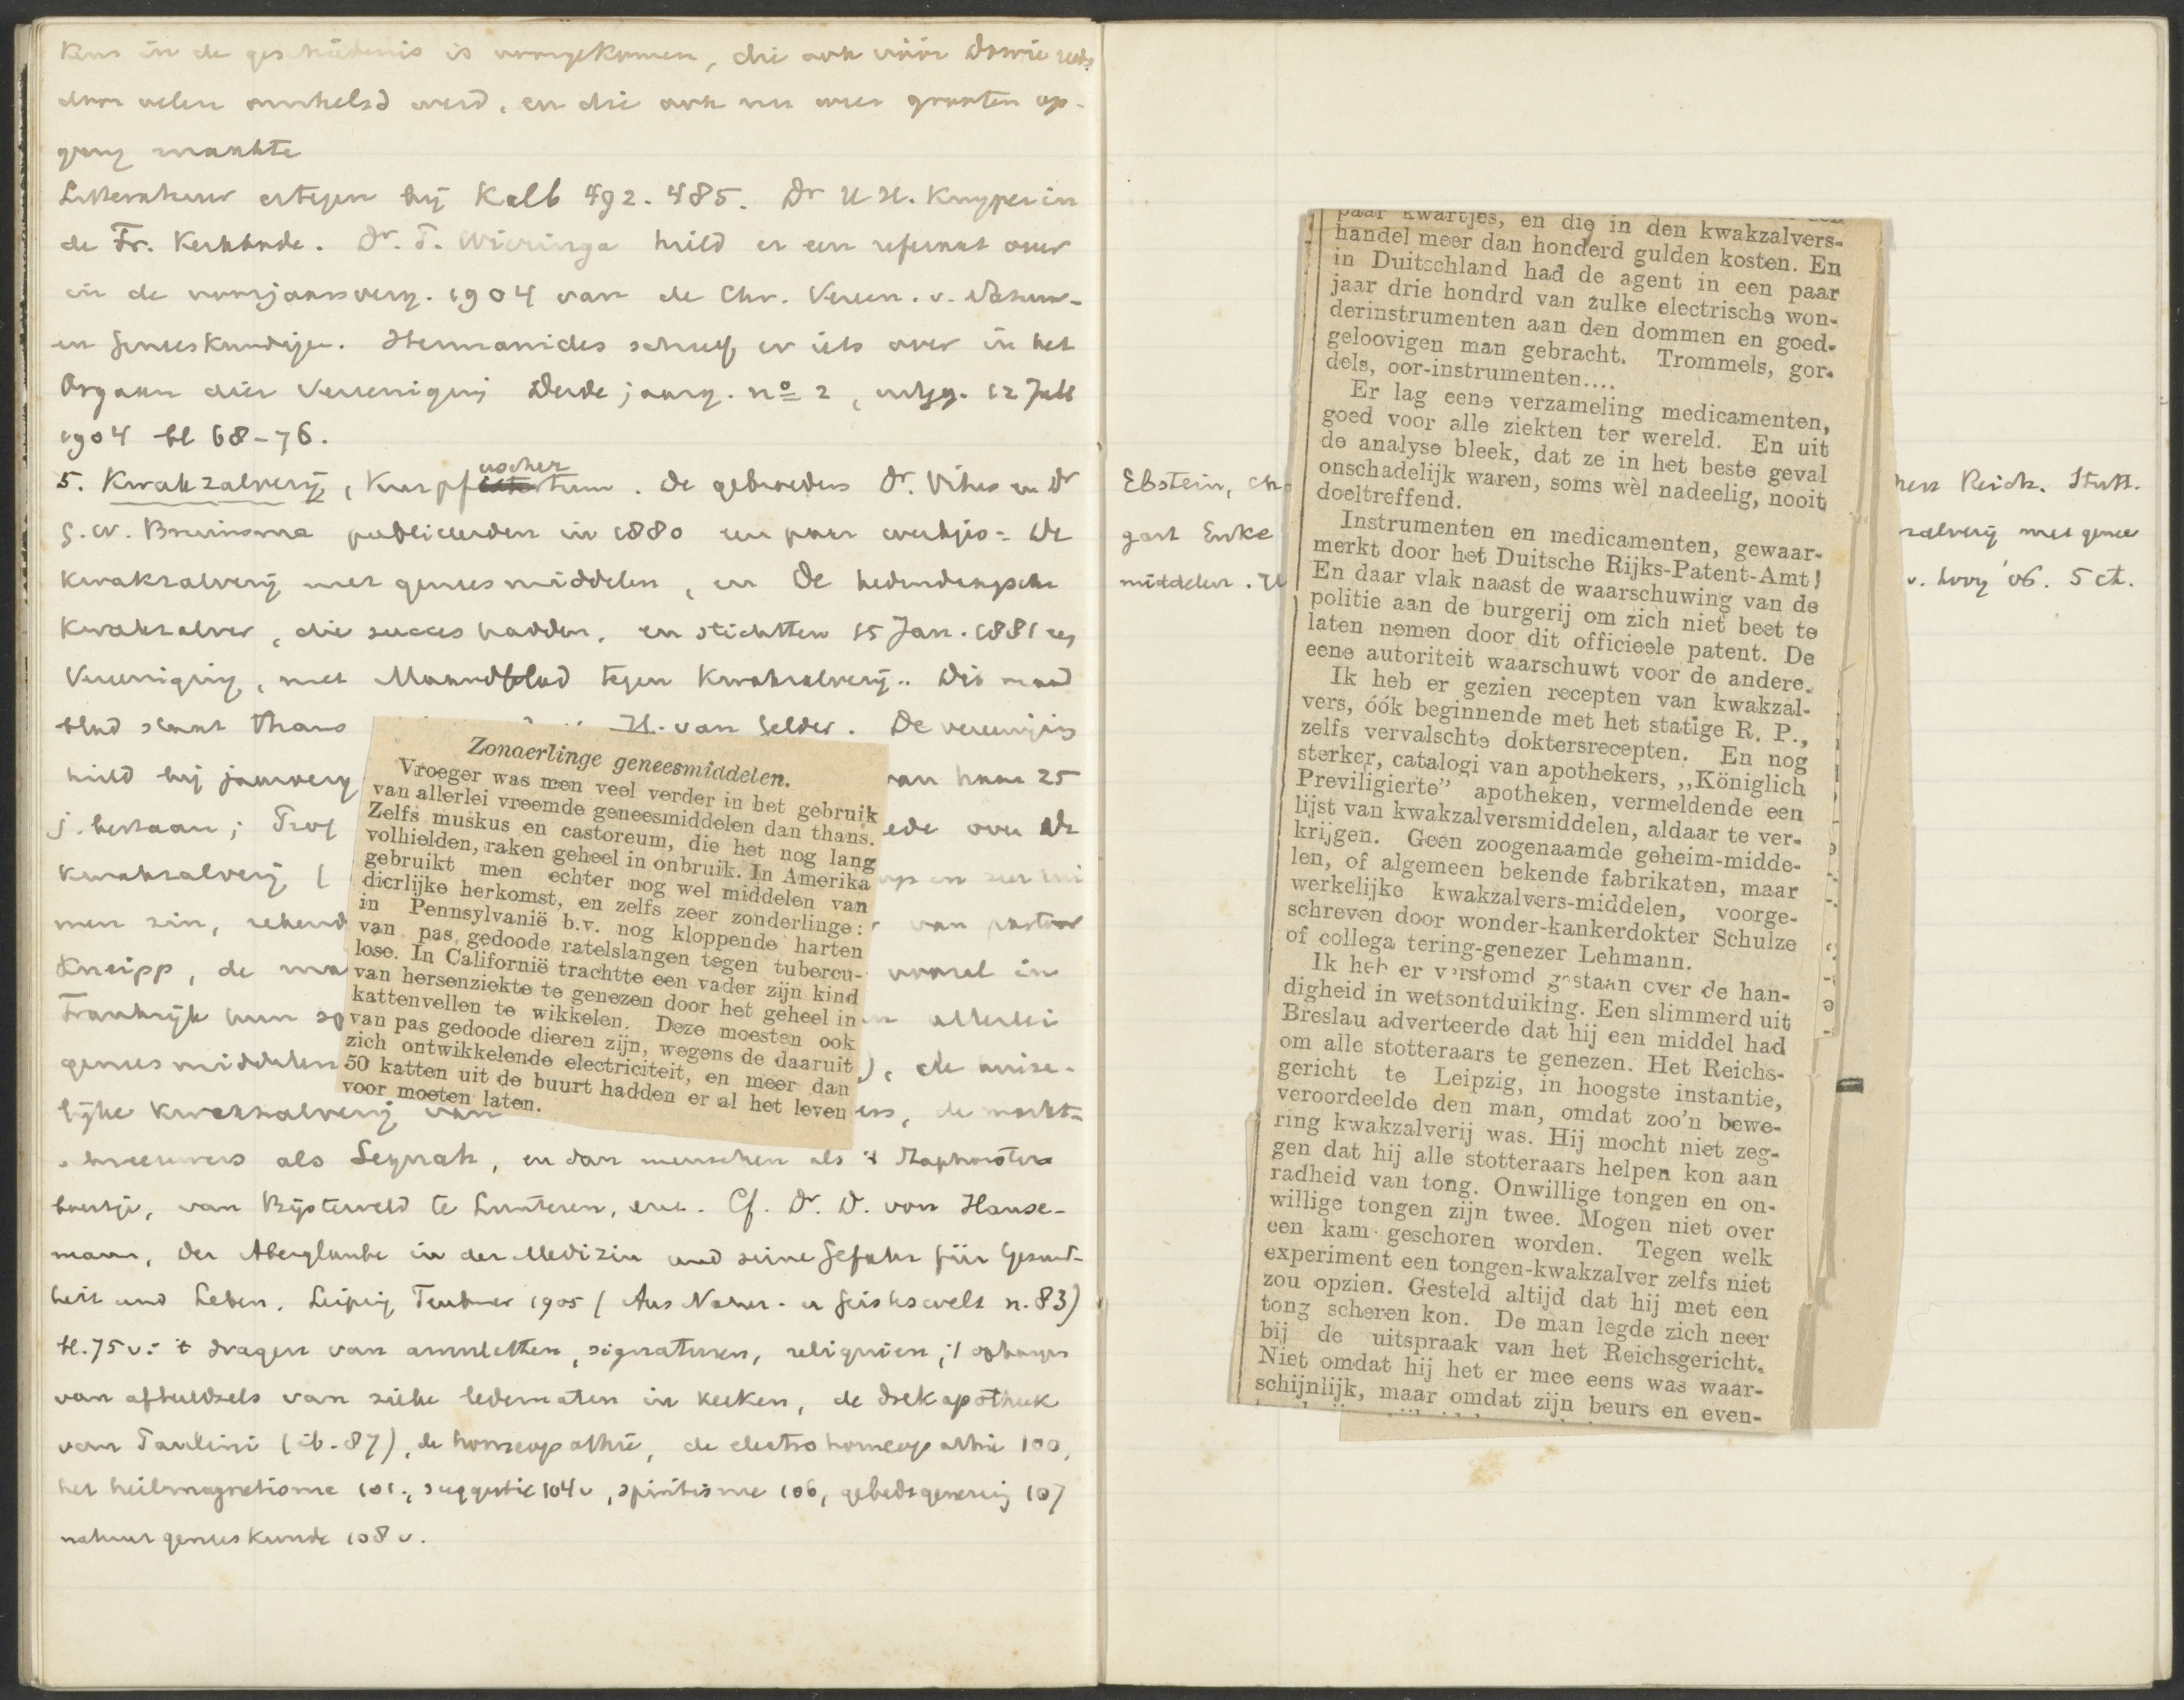 in de geschiedenis is voorgekomen, die ook vóór Dowie reeds
door velen omhelsd werd, en die ook nu weer grooten op-
gang maakte
Litteratuur ertegen bij Kalb 492. 485. Dr H. H. Kuyper in
de Fr. Kerkbode. Dr. T. Wieringa hield er een referaat over
in de voorjaarsverg. 1904 van de Chr. Vereen. v. Natuur-
en Geneeskundigen. Hermanides schreef er iets over in het
Orgaan dier Vereeniging Derde jaarg. no 2, uitgeg. 12 Juli
1904 bl 68-76.
5. Kwakzalverij, Kurpfuschertum. De gebroeders Dr. Vitus en Dr
G. W. Bruinsma publiceerden in 1880 een paar werkjes: De
Kwakzalverij met geneesmiddelen, en De hedendaagsche
Kwakzalver, die succes hadden, en stichtten 15 Jan. 1881 een
Vereeniging, met Maandblad tegen Kwakzalverij. Dit maand
blad staat thans H. van Gelder. De vereeniging
hield bij jaarverg van haar 25
j. bestaan; Prof ede over De
kwakzalverij (
men zin, rekend van pastoor
Kneipp, de ma vooral in
Frankrijk hun allerlei
geneesmiddelen ), de
lijke kwakzalverij van de markt-
schreeuwers als Sequah, en dan menschen als 't Staphorster
boertje, van Bijsterveld te Lunteren, enz. Cf. Dr. D. von Hanse-
mann, Der Aberglaube in der Medizin und seine Gefahr für Gesund-
heit und Leben. Leipzig Teubner 1905 (Aus Natur- u Geisteswelt n. 83)
bl. 75 v: 't dragen van amuletten, signaturen, reliquien, 't ophangen
van afbeeldsels van zieke ledematen in kerken, de drekapotheek
van Paulini (ib. 87), de homeopathie, de electrohomeopathie 100,
het heilmagnetisme 101, suggestie 104 v, spiritisme 106, gebedsgenezing 107
natuurgeneeskunde 108 v.
Zonderlinge geneesmiddelen.
Vroeger was men veel verder in het gebruik
van allerlei vreemde geneesmiddelen dan thans.
Zelfs muskus en castoreum, die het nog lang
volhielden, raken geheel in onbruik. In Amerika
gebruikt men echter nog wel middelen van
dierlijke herkomst, en zelfs zeer zonderlinge:
in Pennsylvanië b.v. nog kloppende harten
van pas gedoode ratelslangen tegen tubercu-
lose. In Californië trachtte een vader zijn kind
van hersenziekte te genezen door het geheel in
kattenvellen te wikkelen. Deze moesten ook
van pas gedoode dieren zijn, wegens de daaruit
zich ontwikkelende electriciteit, en meer dan
50 katten uit de buurt hadden er al het leven
voor moeten laten.
Ebstein, Reich. Stutt-
gart Enke zalverij met genees
middelen. v. Looy '06. 5 ct.
paar kwartjes, en die in den kwakzalvers-
handel meer dan honderd gulden kosten. En
in Duitschland had de agent in een paar
jaar drie hondrd van zulke electrische won-
derinstrumenten aan den dommen en goed-
geloovigen man gebracht. Trommels, gor-
dels, oor-instrumenten....
Er lag eene verzameling medicamenten,
goed voor alle ziekten ter wereld. En uit
de analyse bleek, dat ze in het beste geval
onschadelijk waren, soms wèl nadeelig, nooit
doeltreffend.
Instrumenten en medicamenten, gewaar-
merkt door het Duitsche Rijks-Patent-Amt!
En daar vlak naast de waarschuwing van de
politie aan de burgerij om zich niet beet te
laten nemen door dit officieele patent. De
eene autoriteit waarschuwt voor de andere.
Ik heb er gezien recepten van kwakzal-
vers, óók beginnende met het statige R. P.,
zelfs vervalschte doktersrecepten. En nog
sterker, catalogi van apothekers, „Königlich
Previligierte" apotheken, vermeldende een
lijst van kwakzalversmiddelen, aldaar te ver-
krijgen. Geen zoogenaamde geheim-midde-
len, of algemeen bekende fabrikaten, maar
werkelijke kwakzalvers-middelen, voorge-
schreven door wonder-kankerdokter Schulze
of collega tering-genezer Lehmann.
Ik heb er verstomd gestaan over de han-
digheid in wetsontduiking. Een slimmerd uit
Breslau adverteerde dat hij een middel had
om alle stotteraars te genezen. Het Reichs-
gericht te Leipzig, in hoogste instantie,
veroordeelde den man, omdat zoo'n bewe-
ring kwakzalverij was. Hij mocht niet zeg-
gen dat hij alle stotteraars helpen kon aan
radheid van tong. Onwillige tongen en on-
willige tongen zijn twee. Mogen niet over
een kam geschoren worden. Tegen welk
experiment een tongen-kwakzalver zelfs niet
zou opzien. Gesteld altijd dat hij met een
tong scheren kon. De man legde zich neer
bij de uitspraak van het Reichsgericht.
Niet omdat hij het er mee eens was waar-
schijnlijk, maar omdat zijn beurs en even-